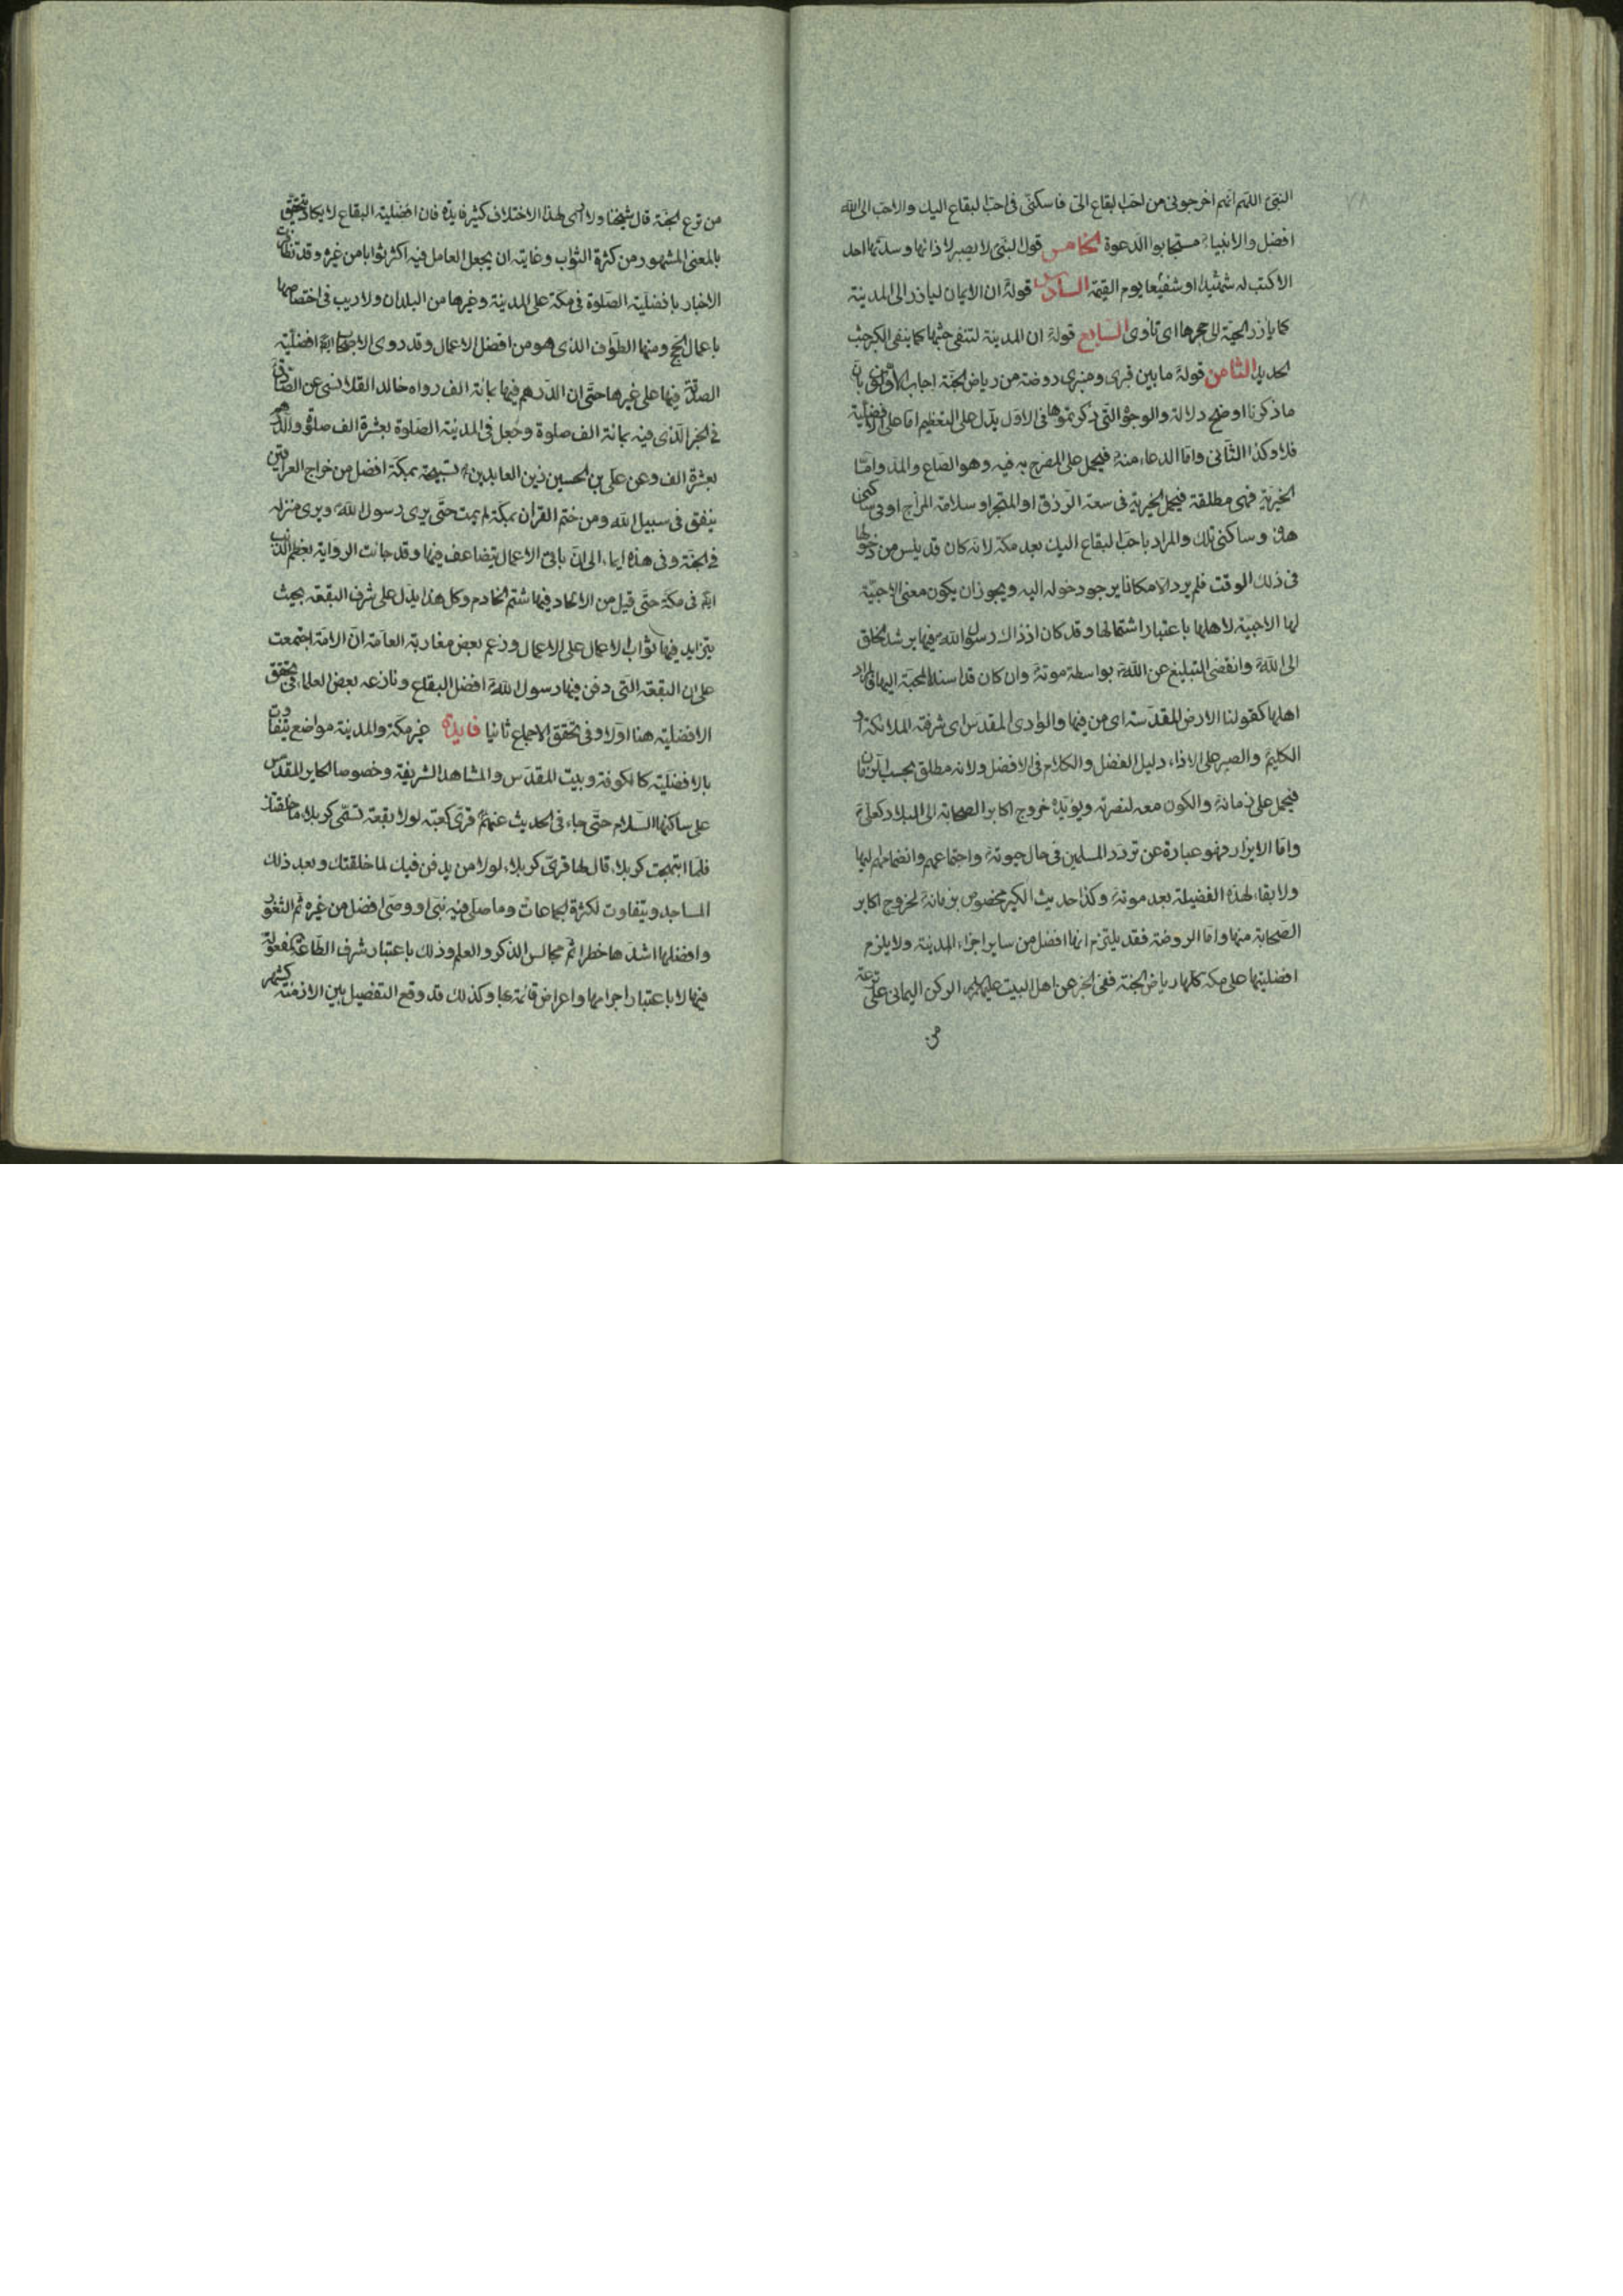 النبیّ اللهم انهم اخرجونی من احب البقاع الیّ فاسکنی فی احب البقاع الیک والاحب الی الله
افضل والانبیاء مستجابوا الدعوة الخامس قول النبی لا یصبر لاذائها وشدتها احد
الا کنت له شهیدا او شفیعا یوم القیمة السادس قوله ان الایمان لیارز الی المدینة
کما یارز الحیة الی جحرها ای تاوی السابع قوله ان المدینة لتنفی خبثها کما ینفی الکیر خبث
الحدید الثامن قوله ما بین قبری ومنبری روضة من ریاض الجنة اجاب الاولون بان
ما ذکرنا اوضح دلالة والوجوه التی ذکرتموها فی الاول یدل علی التعظیم اما علی الافضلیة
فلا وکذا الثانی واما الدعاء منه فیحمل علی المصرح به فیه وهو الصاع والمد واما
الخیریة فهی مطلقة فیحمل الخیریة فی سعة الرزق او المتجر او سلامة المزاج او فی ساکنی
هذه وساکنی تلک والمراد باحب البقاع الیک بعد مکة لانه کان قد یئس من دخولها
فی ذلک الوقت فلم یرد الا مکانا یرجو دخوله الیه ویجوز ان یکون معنی الاحبیّة
لها الاحبیة لاهلها باعتبار اشتمالها وقد کان اذ ذاک رسول الله فیها یرشد الخلق
الی الله وانقضی التبلیغ عن الله بواسطة موته وان کان قد اسند المحبة الیها فالمراد
اهلها کقولنا الارض المقدسة ای من فیها والوادی المقدس ای شرفته الملائکة او
الکلیم والصبر علی الاذاء دلیل الفضل والکلام فی الافضل ولانه مطلق بحسب الزمان
فیحمل علی زمانه والکون معه لنصرته ویؤیده خروج اکابر الصحابة الی البلاد کعلی
واما الایراز فهو عبارة عن تردد المسلمین فی حال حیوته واجتماعهم وانضمامهم الیها
ولا بقاء لهذه الفضیلة بعد موته وکذا حدیث الکیر مخصوص بزمانه لخروج اکابر
الصحابة منها واما الروضة فقد یلتزم انها افضل من سایر اجزاء المدینة ولا یلزم
افضلیتها علی مکة کلها ریاض الجنة ففی الخبر عن اهل البیت علیهم الرکن الیمانی علی ترعة
من
من ترع الجنة قال شیخنا ولا اری لهذا الاختلاف کثیر فایدة فان افضلیة البقاع لا یکاد یتحقق
بالمعنی المشهور من کثرة الثواب وغایته ان یجعل العامل فیه اکثر ثوابا من غیره وقد تظافرت
الاخبار بافضلیة الصلوة فی مکة علی المدینة وغیرها من البلدان ولا ریب فی اختصاصها
باعمال الحج ومنها الطواف الذی هو من افضل الاعمال وقد روی الاصحاب افضلیة
الصدقة فیها علی غیرها حتی ان الدرهم فیها بمائة الف رواه خالد القلانسی عن الصادق
فی الخبر الذی فیه بمائة الف صلوة وجعل فی المدینة الصلوة بعشرة الف صلوة والدرهم
بعشرة الف وعن علی بن الحسین زین العابدین تسبیحة بمکة افضل من خراج العراقین
ینفق فی سبیل الله ومن ختم القران بمکة لم یمت حتی یری رسول الله ویری منزله
فی الجنة وفی هذه ایماء الی ان باقی الاعمال یتضاعف فیها وقد جائت الروایة بعظم الذنب
ایضا فی مکة حتی قیل من الالحاد فیها شتم الخادم وکل هذا یدل علی شرف البقعة بحیث
یتزاید فیها ثواب الاعمال علی الاعمال وزعم بعض مغاربة العامة ان الامة اجتمعت
علی ان البقعة التی دفن فیها رسول الله افضل البقاع ونازعه بعض العلماء فی تحقق
الافضلیة هنا اولا وفی تحقق الاجماع ثانیا فایدة غیر مکة والمدینة مواضع یتفاوت
بالافضلیة کالکوفة وبیت المقدس والمشاهد الشریفة وخصوصا الحایر المقدس
علی ساکنها السلام حتی جاء فی الحدیث عنهم قری کعبة لولا بقعة تسمی کربلاء ما خلقتک
فلما ابتهجت کربلاء قال لها قری کربلاء لولا من یدفن فیک لما خلقتک وبعد ذلک
المساجد ویتفاوت لکثرة الجماعات وما صلی فیه نبی او وصی افضل من غیره ثم الثغور
وافضلها اشدها خطرا ثم مجالس الذکر والعلم وذلک باعتبار شرف الطاعة المفعولة
فیها لا باعتبار اجرامها واعراض قائمة بها وکذلک قد وقع التفضیل بین الازمنة کشهر